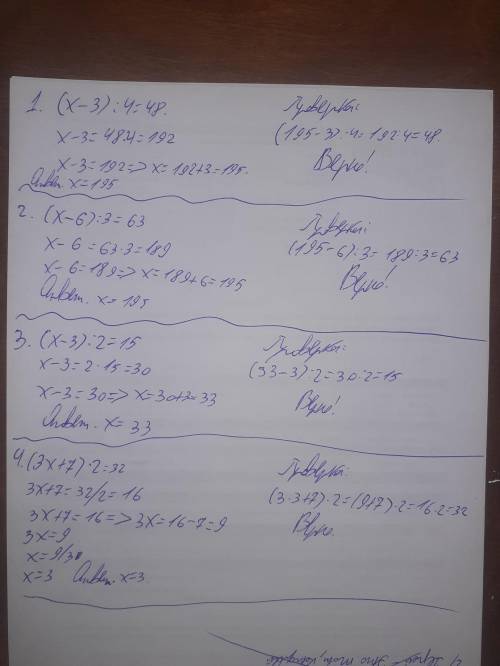 1. (x-3):4=48.
x-3=48·4=192
x-3=192=>x=192+3=195.
Ответ. x=195
Проверка:
(195-3):4=192:4=48.
Верно!
2. (x-6):3=63
x-6=63·3=189
x-6=189=>x=189+6=195
Ответ. x=195
Проверка:
(195-6):3=189:3=63
Верно!
3. (x-3):2=15
x-3=2·15=30
x-3=30=>x=30+3=33
Ответ. x=33
Проверка:
(33-3):2=30:2=15
Верно!
4. (3x+7)·2=32
3x+7=32/2=16
3x+7=16=>3x=16-7=9
3x=9
x=9/3
x=3 Ответ. x=3
Проверка:
(3·3+7)·2=(9+7)·2=16·2=32
Верно.